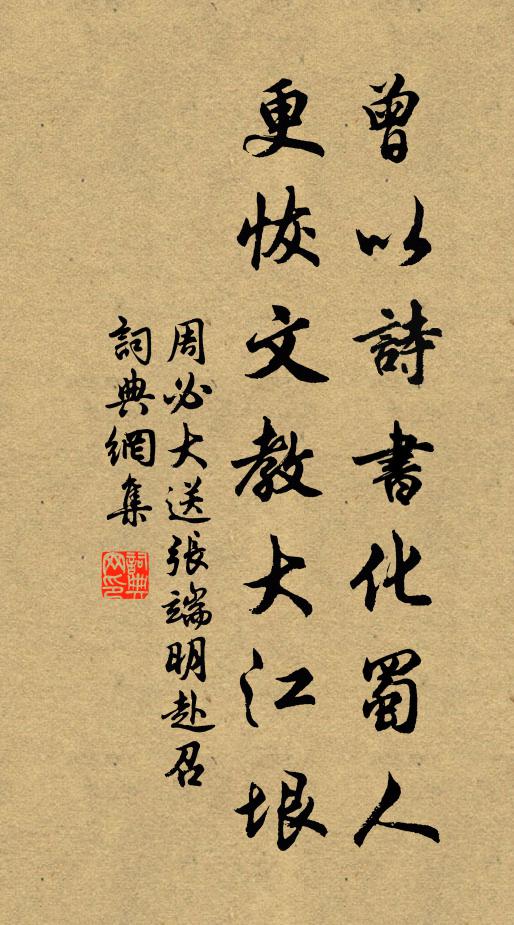 曾以詩書化蜀人
更恢文教大江垠
周必大送張端明赴召
詞典網集
詞典網印